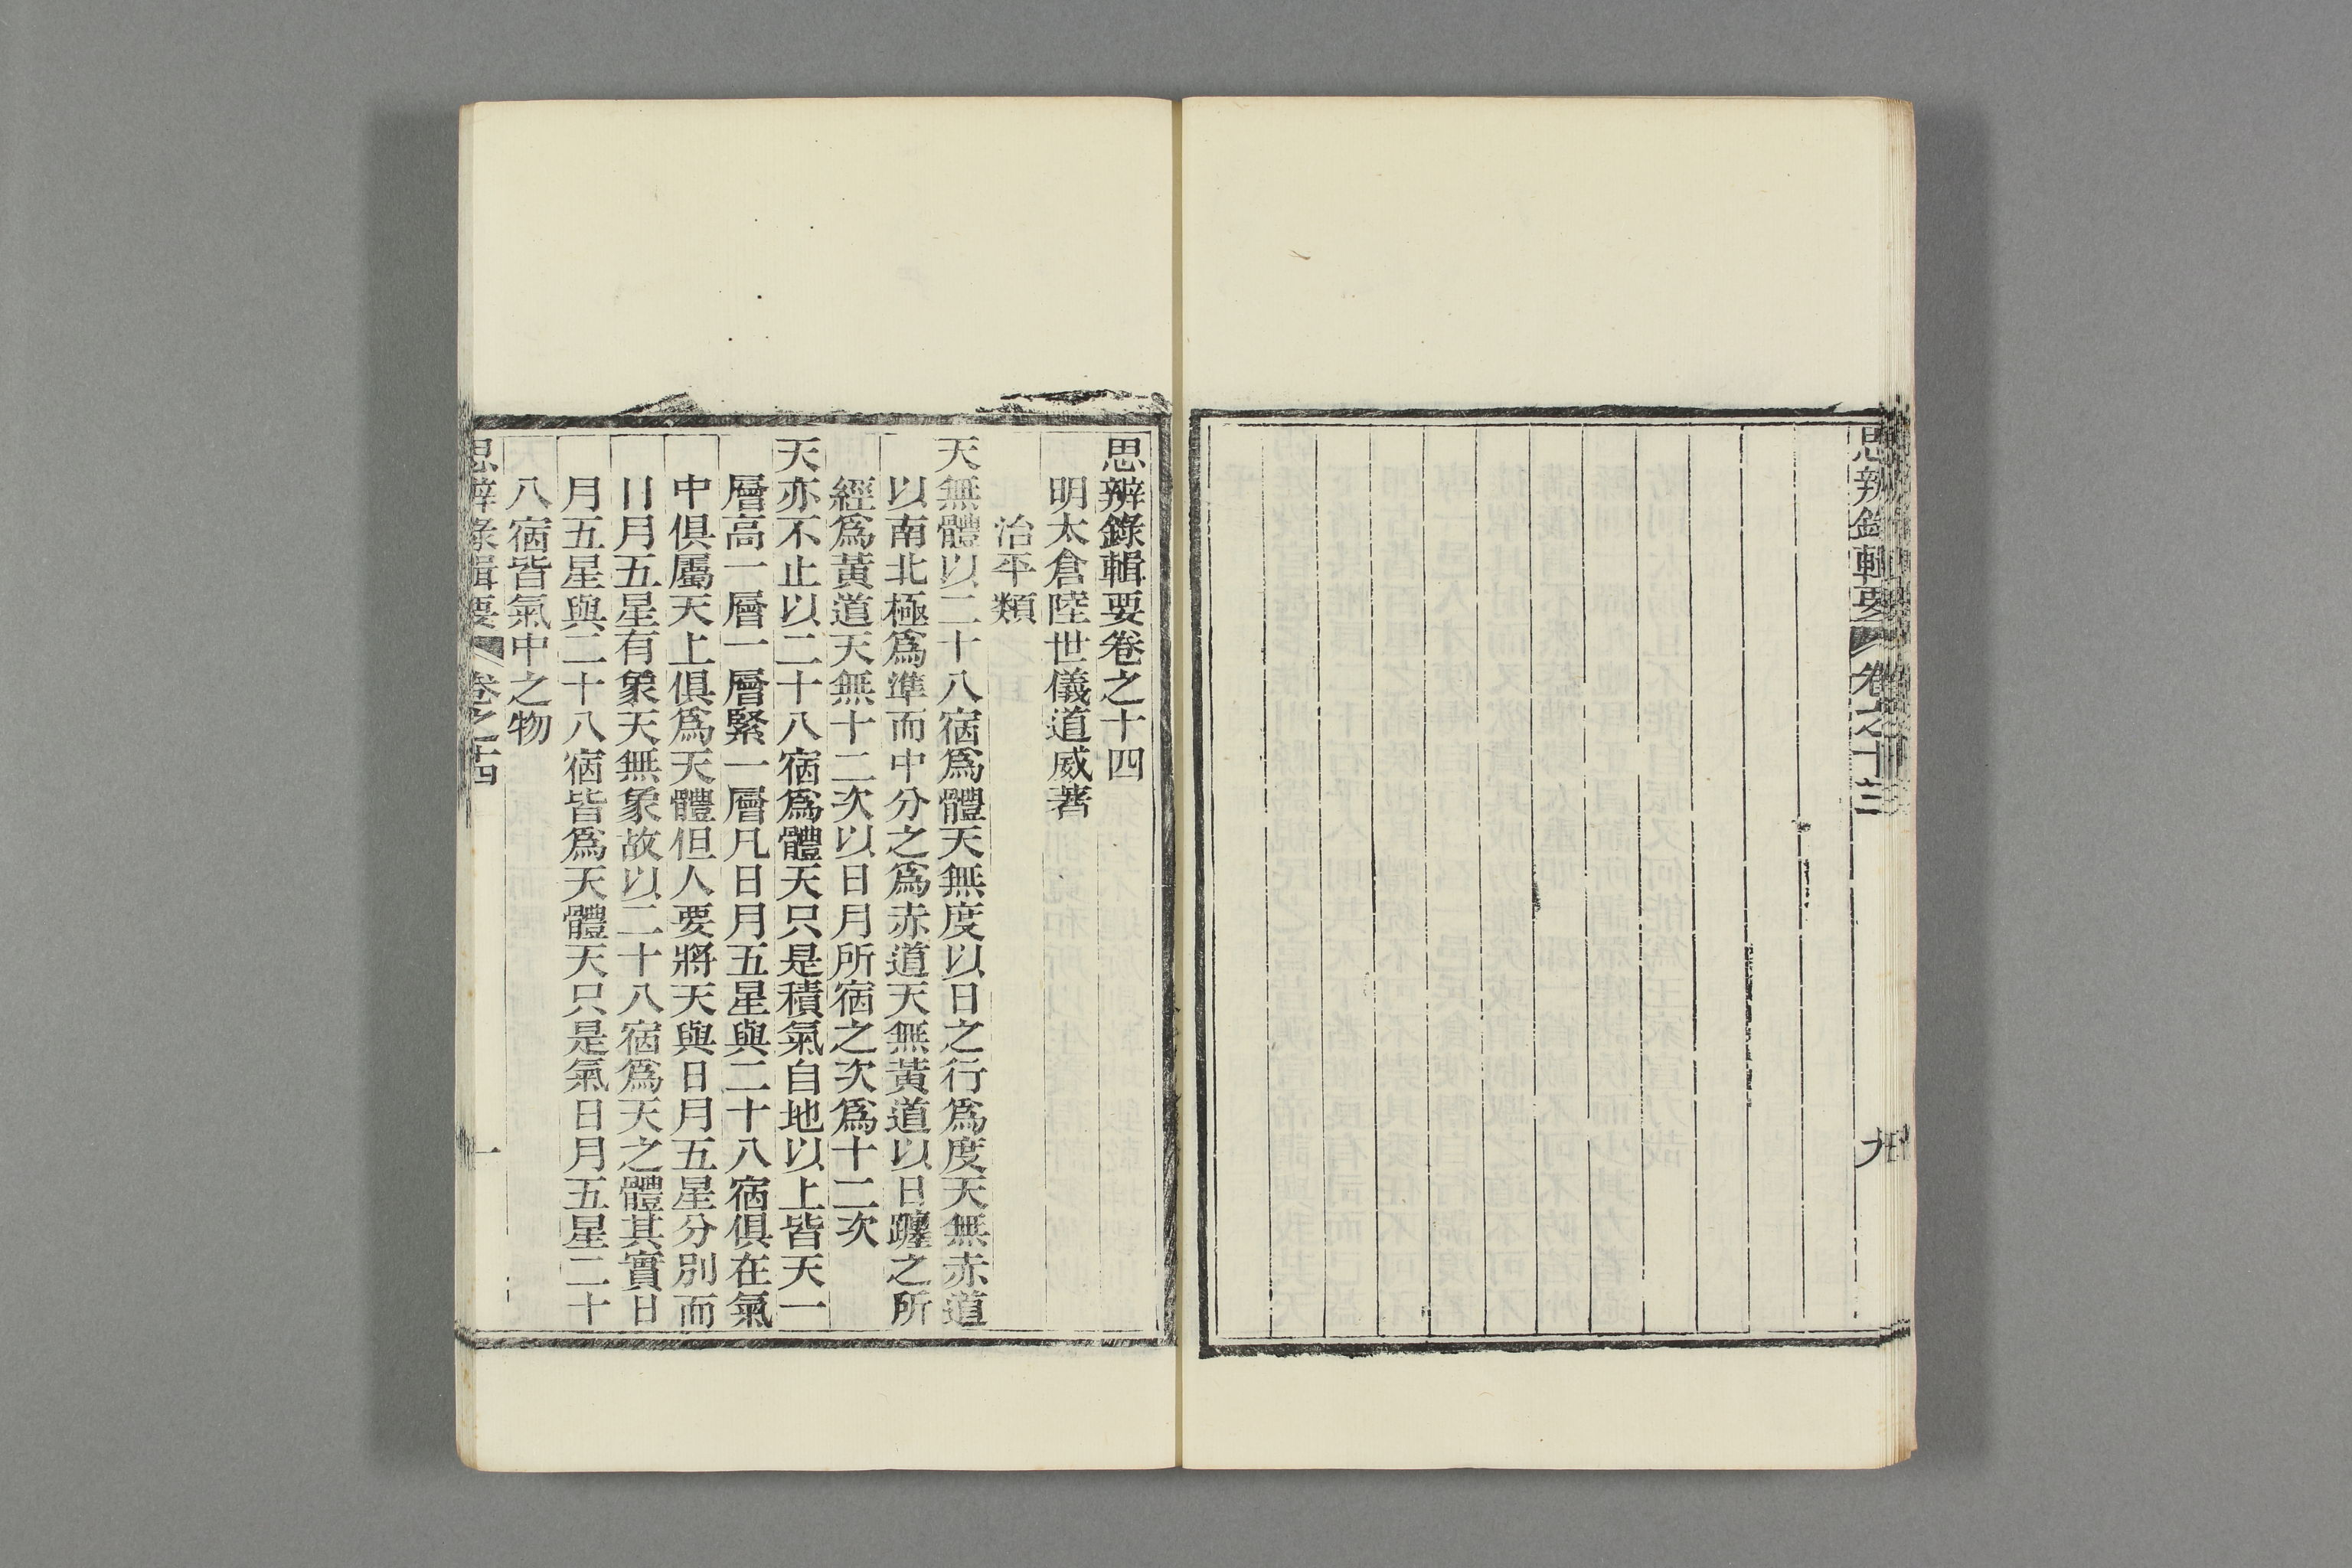 思辨錄輯要
卷之十三
思辨錄輯要卷之十四
明太倉陸世儀道威著
治平類
天無體以二十八宿爲體天無度以日之行爲度天無赤道
以南北極爲準而中分之爲赤道天無黃道以日躔之所
經爲黃道天無十二次以日月所宿之次爲十二次
天亦不止以二十八宿爲體天只是積氣自地以上皆天一
層高一層一層緊一層凡日月五星與二十八宿俱在氣
中俱屬天上俱爲天體但人要將天與日月五星分別而
日月五星有象天無象故以二十八宿爲天之體其實日
月五星與二十八宿皆爲天體天只是氣日月五星二十
八宿皆氣中之物
思辨錄輯要
卷之十四
一